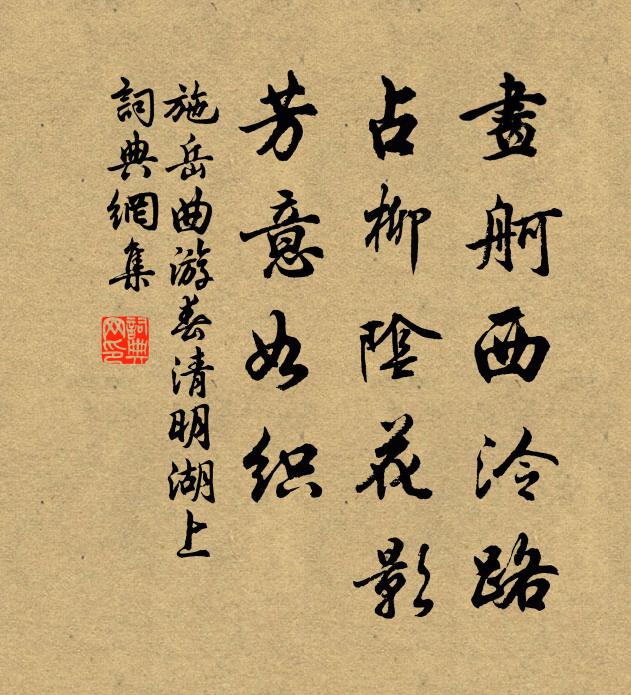 畫舸西泠路
占柳陰花影
芳意如织
施岳曲游春清明湖上
詞典網集
詞典
网印